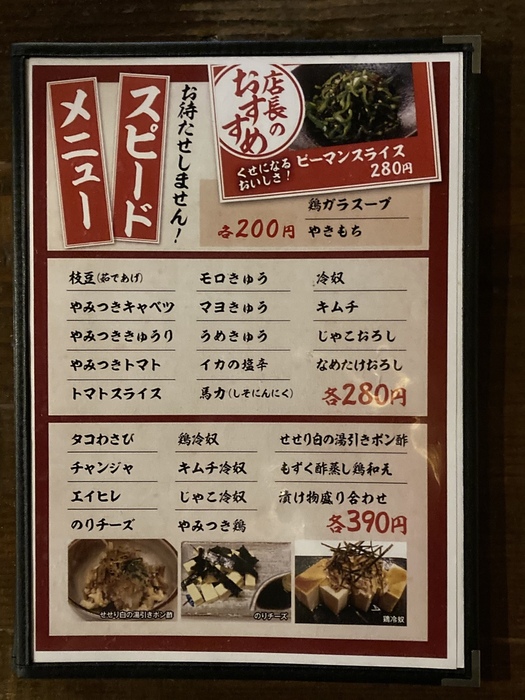 スピード
メニュー
お待たせしません！
店長の
おすすめ
くせになる
おいしさ！
ピーマンスライス
280円
鶏ガラスープ
各200円 やきもち
枝豆(茹であげ) モロきゅう 冷奴
やみつきキャベツ マヨきゅう キムチ
やみつききゅうり うめきゅう じゃこおろし
やみつきトマト イカの塩辛 なめたけおろし
トマトスライス 馬力(しそにんにく) 各280円
タコわさび 鶏冷奴 せせり白の湯引きポン酢
チャンジャ キムチ冷奴 もずく酢蒸し鶏和え
エイヒレ じゃこ冷奴 漬け物盛り合わせ
のりチーズ やみつき鶏 各390円
せせり白の湯引きポン酢 のりチーズ 鶏冷奴